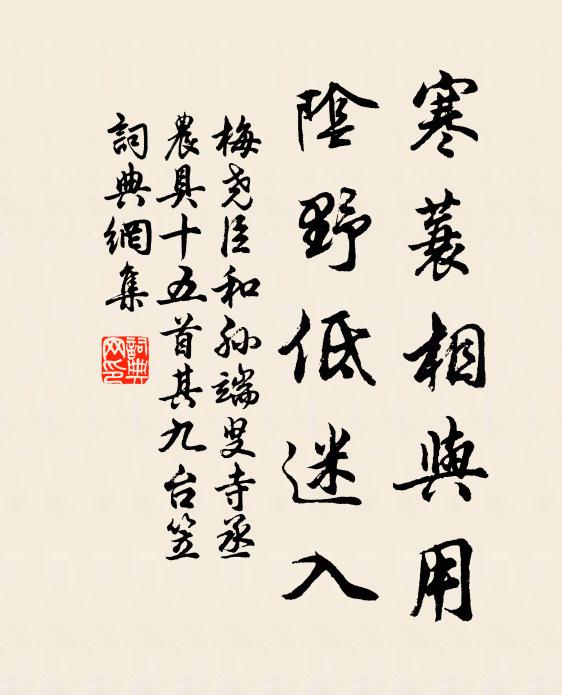 寒蓑相與用
陰野低迷入
梅堯臣和孙端叟寺丞
農具十五首其九台笠
詞典網集
詞典網印